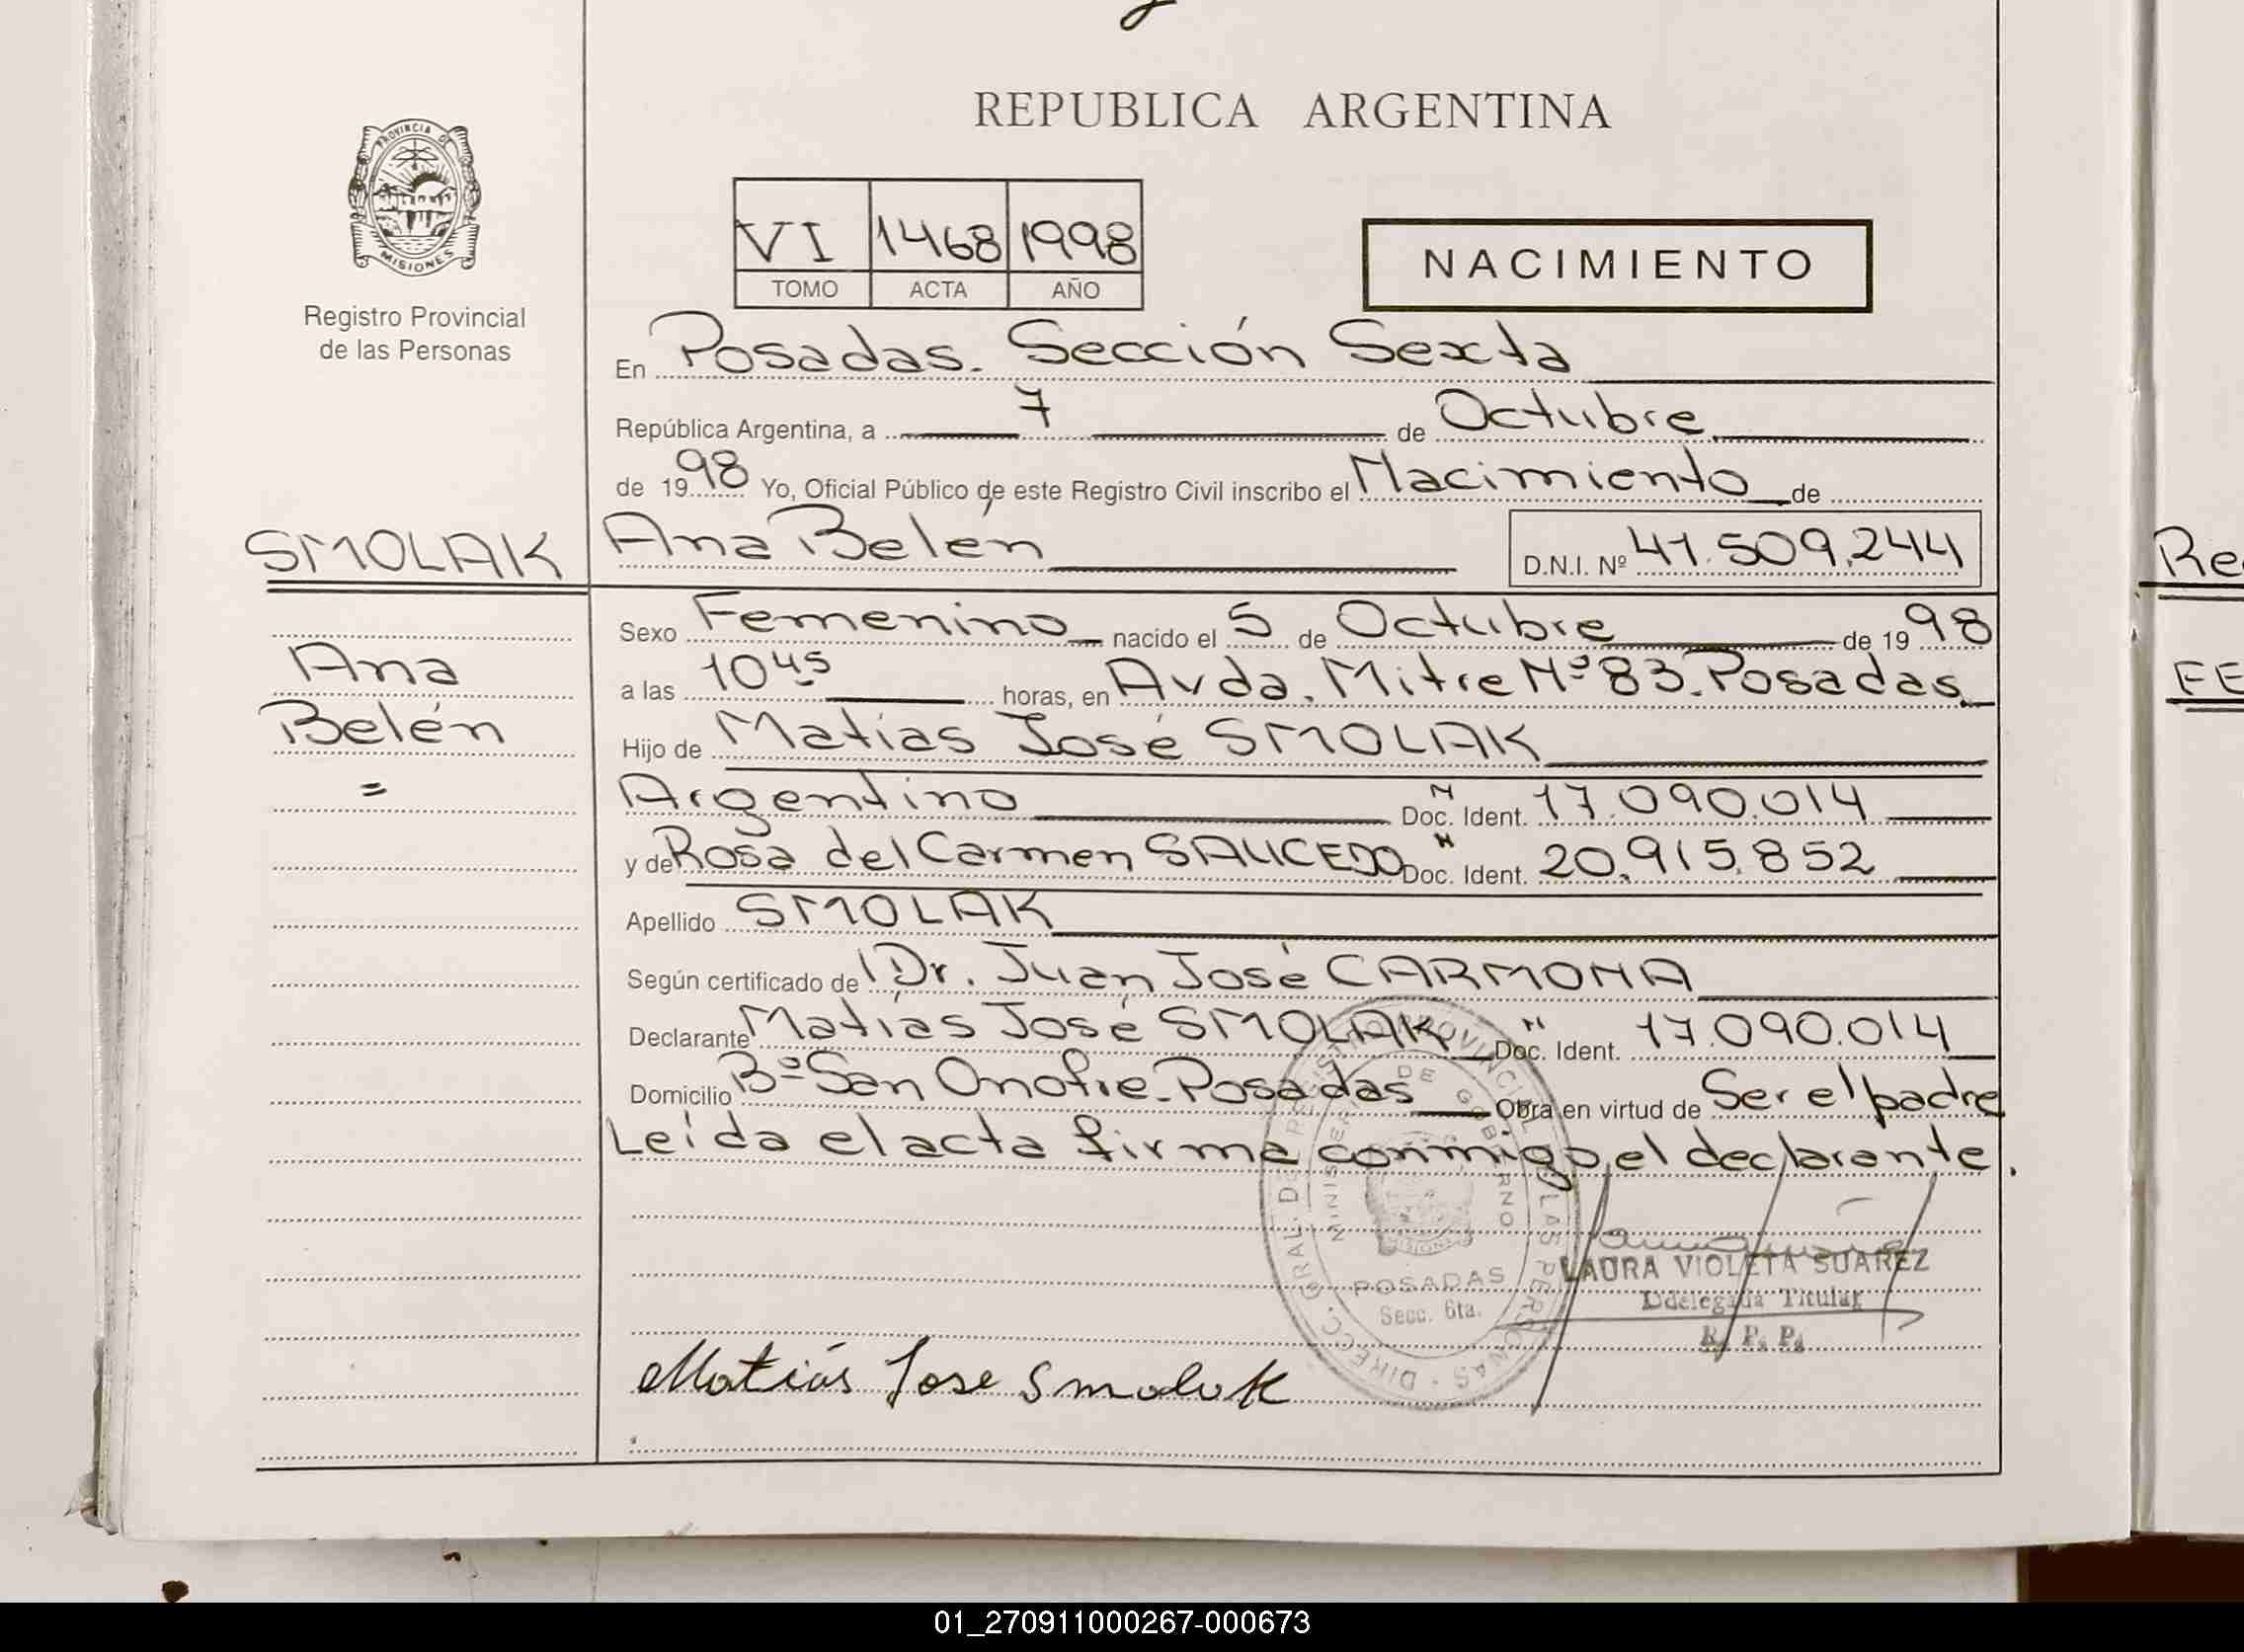 REPUBLICA ARGENTINA
PROVINCIA DE
MISIONES
Registro Provincial
de las Personas
VI 1468 1998
TOMO ACTA AÑO
NACIMIENTO
En Posadas. Sección Sexta
República Argentina, a 7 de Octubre
de 1998 Yo, Oficial Público de este Registro Civil inscribo el Nacimiento de
SMOLAK Ana Belén D.N.I. Nº 41.509.244
Sexo Femenino nacido el 5 de Octubre de 1998
Ana
a las 10 45 horas, en Avda. Mitre Nº 83. Posadas
Belén
Hijo de Matías José SMOLAK
=
Argentino Doc. N Ident. 17.090.014
y de Rosa del Carmen SAUCEDO Doc. N Ident. 20.915.852
Apellido SMOLAK
Según certificado de Dr. Juan José CARMONA
Declarante Matías José SMOLAK Doc. N Ident. 17.090.014
Domicilio Bº San Onofre. Posadas Obra en virtud de Ser el padre
Leída el acta firma conmigo, el declarante.
DIRECC. GRAL. DE REGISTRO PROVINCIAL DE LAS PERSONAS
MINISTERIO DE GOBIERNO
POSADAS
Secc. 6ta.
LAURA VIOLETA SUAREZ
Ddelegada Titular
R. P. P.
Matiás Jose Smolak
Re
FE
01_270911000267-000673